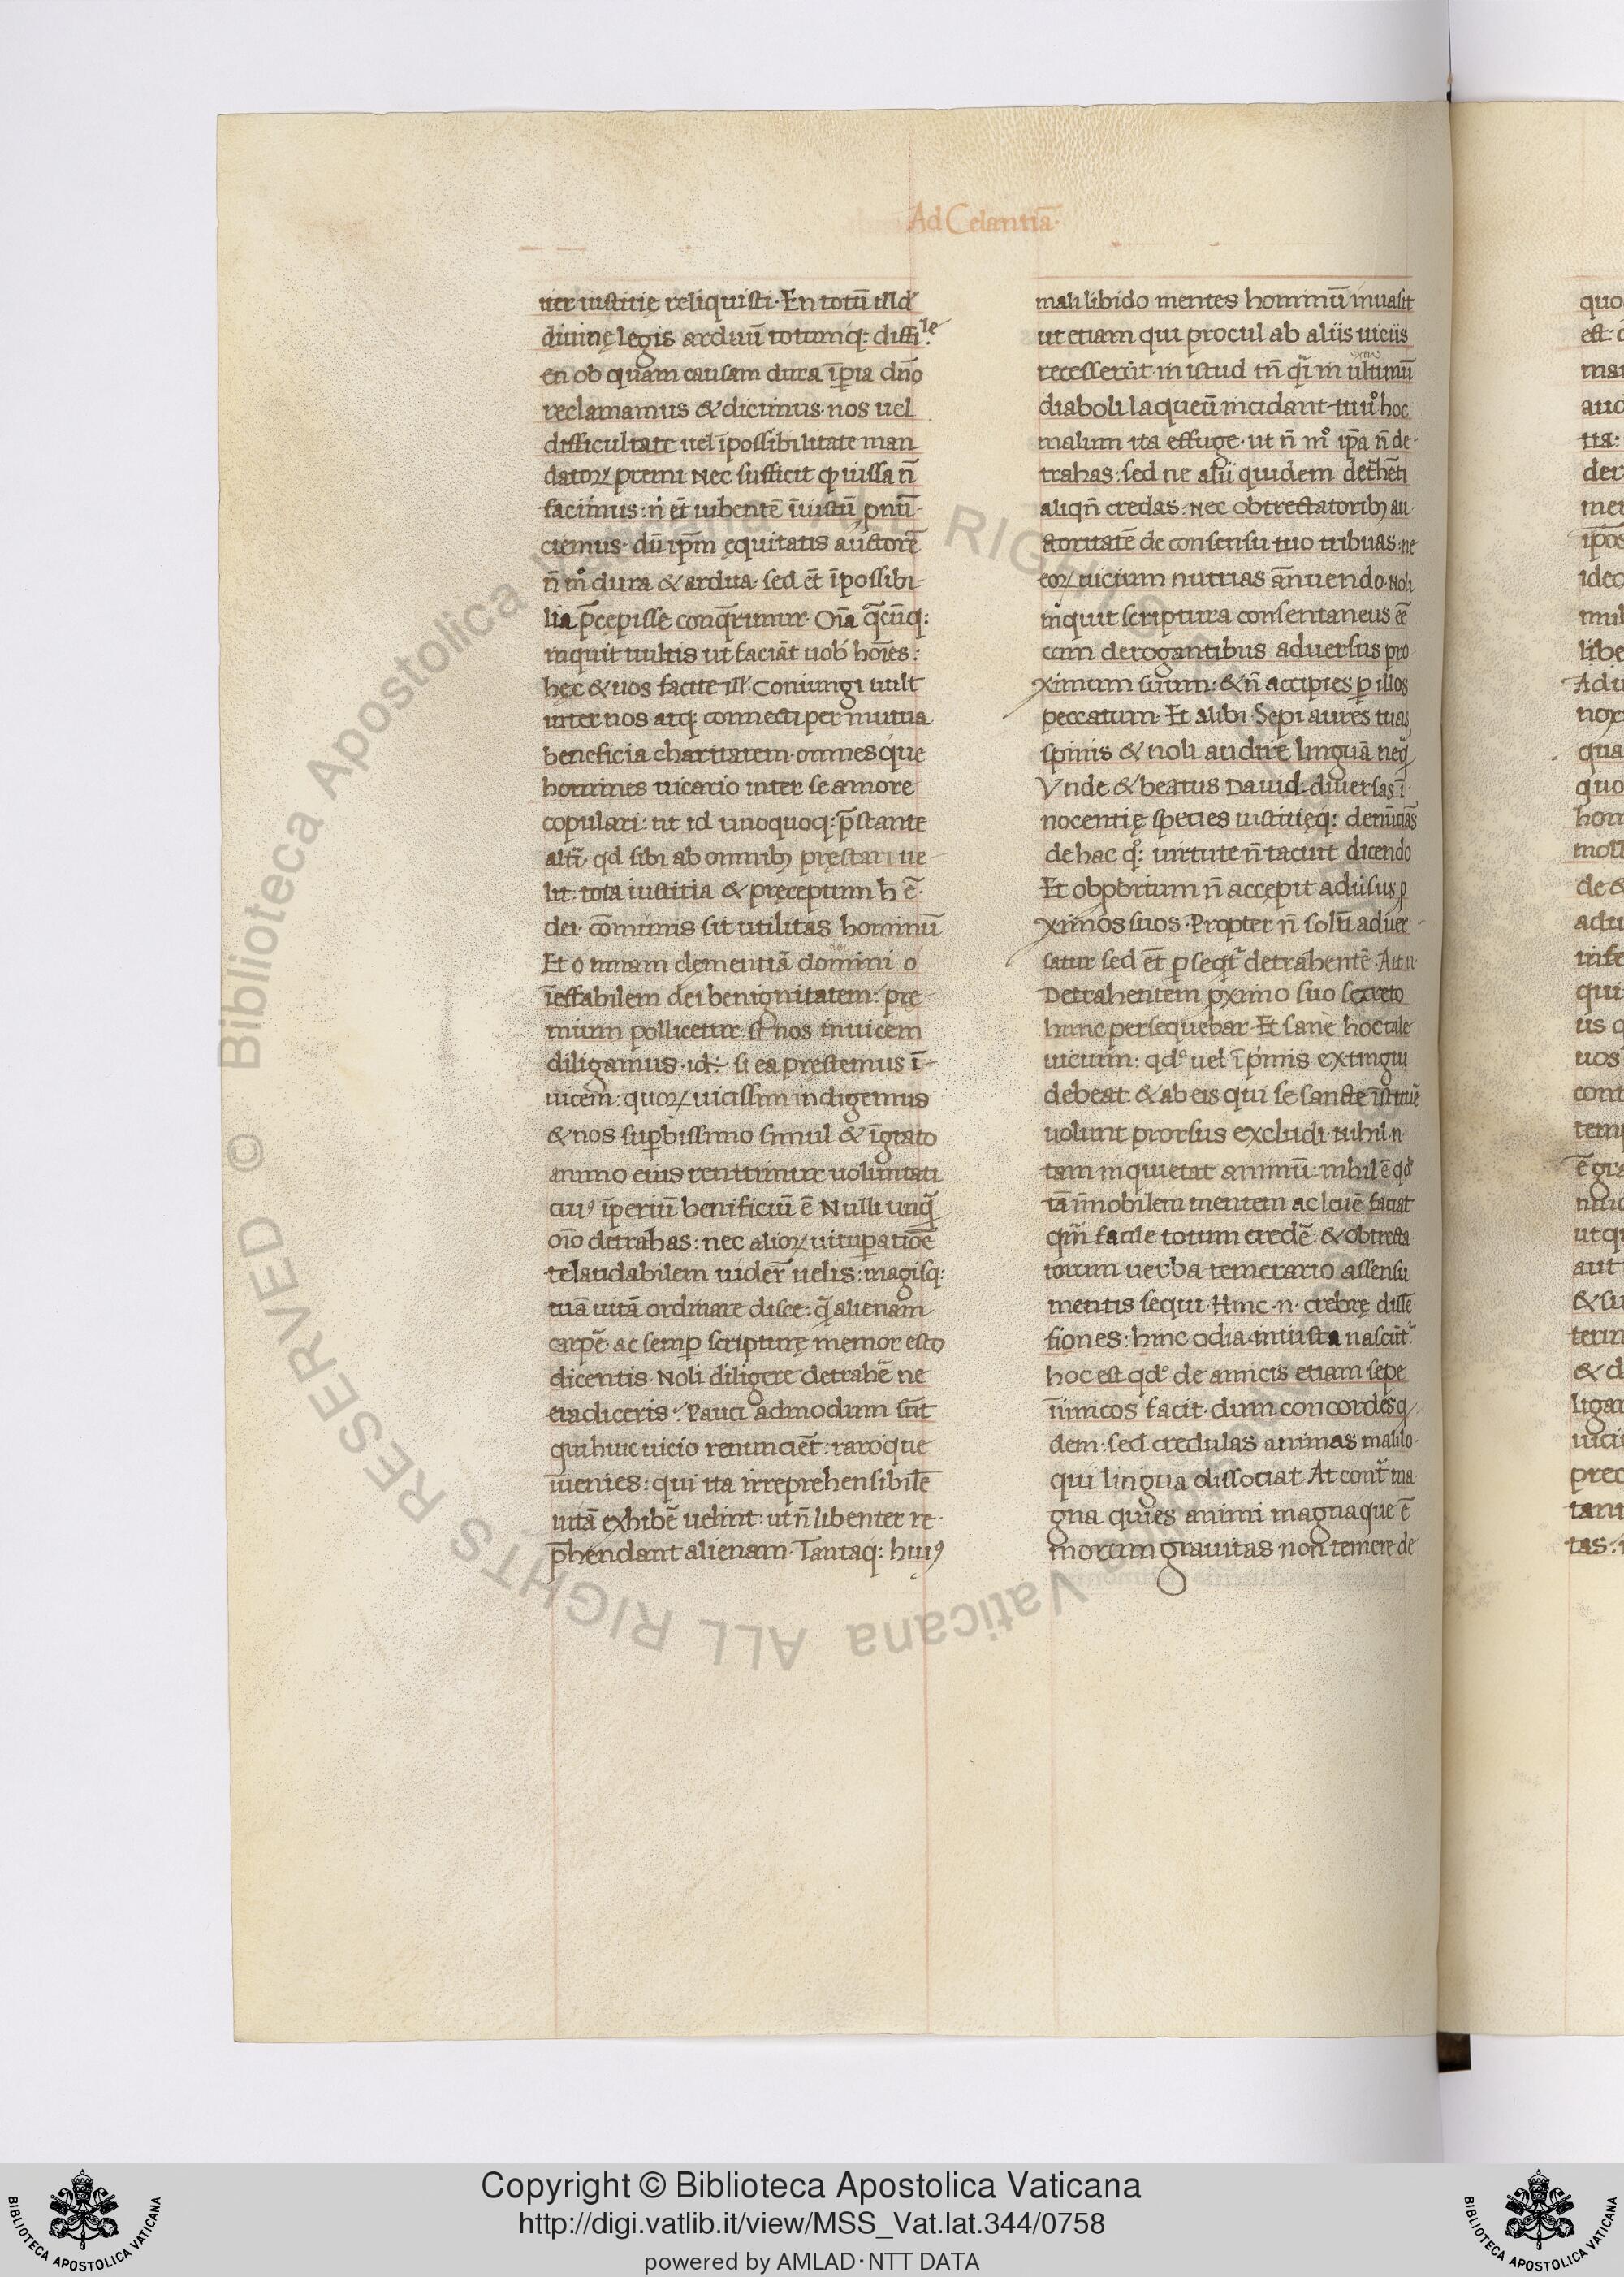 Ad Celantiā·
iter iustitię reliquisti· En totū illd'
diuinę legis arduū totumq: diffi.le
en ob quam causam dura īpia dn̄o
reclamamus & dicimus· nos uel
difficultate uel īpossibilitate man
datoꝝ premi Nec sufficit ꝙ iussa n̄
facimus: n' et̄ iubentē īiustū ꝓnū-
ciemus· dū ip̄m ęquitatis auctorē
n̄ mº dura & ardua· sed et̄ īpossibi-
lia p̄cepisse conq̄rimur· Oīa q̄cūq:
inquit uultis ut faciāt uob' hoīes:
hęc & uos facite ill'· Coniungi uult
inter nos atq: connecti per mutua
beneficia charitatem· omnesque
homines uicario inter se amore
copulari: ut id unoquoq: p̄stante
alt̄i· qd sibi ab omnibꝫ pręstari ue-
lit: tota iustitia & pręceptum h̄ ē·
dei· cōmunis sit utilitas hominū
Et o miram clementiā domini o
īeffabilem dei benignitatem: prę-
mium pollicetur· si nos inuicem
diligamus· id÷ si ea prestemus ī-
uicem: quoꝝ uicissim indigemus
& nos suꝑbissimo simul & īgrato
animo eius renitimur uoluntati
cuiꝰ īperiū benificiū ē Nulli unq̄
oīo detrahas: nec alioꝝ uituꝑatiōē
te laudabilem uider̄ uelis: magisq:
tuā uitā ordinare disce: q̄ alienam
carpē· ac semꝑ scripturę memor esto
dicentis· Noli diligere detrahē ne
eradiceris· Pauci admodum sūt
qui huic uicio renunciēt: raroque
īuenies: qui ita irreprehensibilē
uitā exhibē uelint: ut n̄ libenter re-
p̄hendant alienam· Tantaq: huiꝰ
mali libido mentes hominū inuasit
ut etiam qui procul ab aliis uiciis
recesserūt· in istud tn̄ q̄i in ultimū
diaboli laqueū incidant· tuu' hoc
malum ita effuge· ut n̄ mº ip̄a n̄ de-
trahas: sed ne alii quidem det̄hēti
aliqn̄ credas: nec obtrectatoribꝫ au-
ctoritatē de consensu tuo tribuas: ne
eoꝝ uicium nutrias ānuendo· Noli
inquit scriptura consentaneus eē
cum derogantibus aduersus pro-
ximum suum: & n̄ accipies ꝑ illos
peccatum· Et alibi· Sepi aures tuas
spinis & noli audire linguā neq̄
Vnde & beatus Dauid· diuersas ī-
nocentię species iustitięq: denūcias
de hac qº: uirtute n̄ tacuit dicendo
Et obꝓbrium n̄ accepit adūsus ꝓ
ximos suos· Propter n̄ solū aduer-
satur sed et̄ ꝑseqt̄ detrahentē· Ait n·
Detrahentem ꝓximo suo secreto
hunc persequebar· Et sane hoc tale
uicium: qd' uel ī p'mis extingui
debeat· & ab eis qui se sancte īstituē
uolunt prorsus excludi· nihil·n·
tam inquietat animū: nihil ē qd'
tā īmobilem mentem ac leuē faciat
qm̄ facile totum credē: & obtrecta
torum uerba temerario assensu
mentis sequi· Hinc·n· crebrę disse-
siones: hinc odia iniusta nascūt'
hoc est qd' de amicis etiam sepe
īimicos facit· dum concordes q
dem: sed credulas animas malilo-
qui lingua dissociat· At cont̄ ma-
gna quies animi magnaque ē
morum grauitas non temere de
Copyright © Biblioteca Apostolica Vaticana
http://digi.vatlib.it/view/MSS_Vat.lat.344/0758
powered by AMLAD·NTT DATA